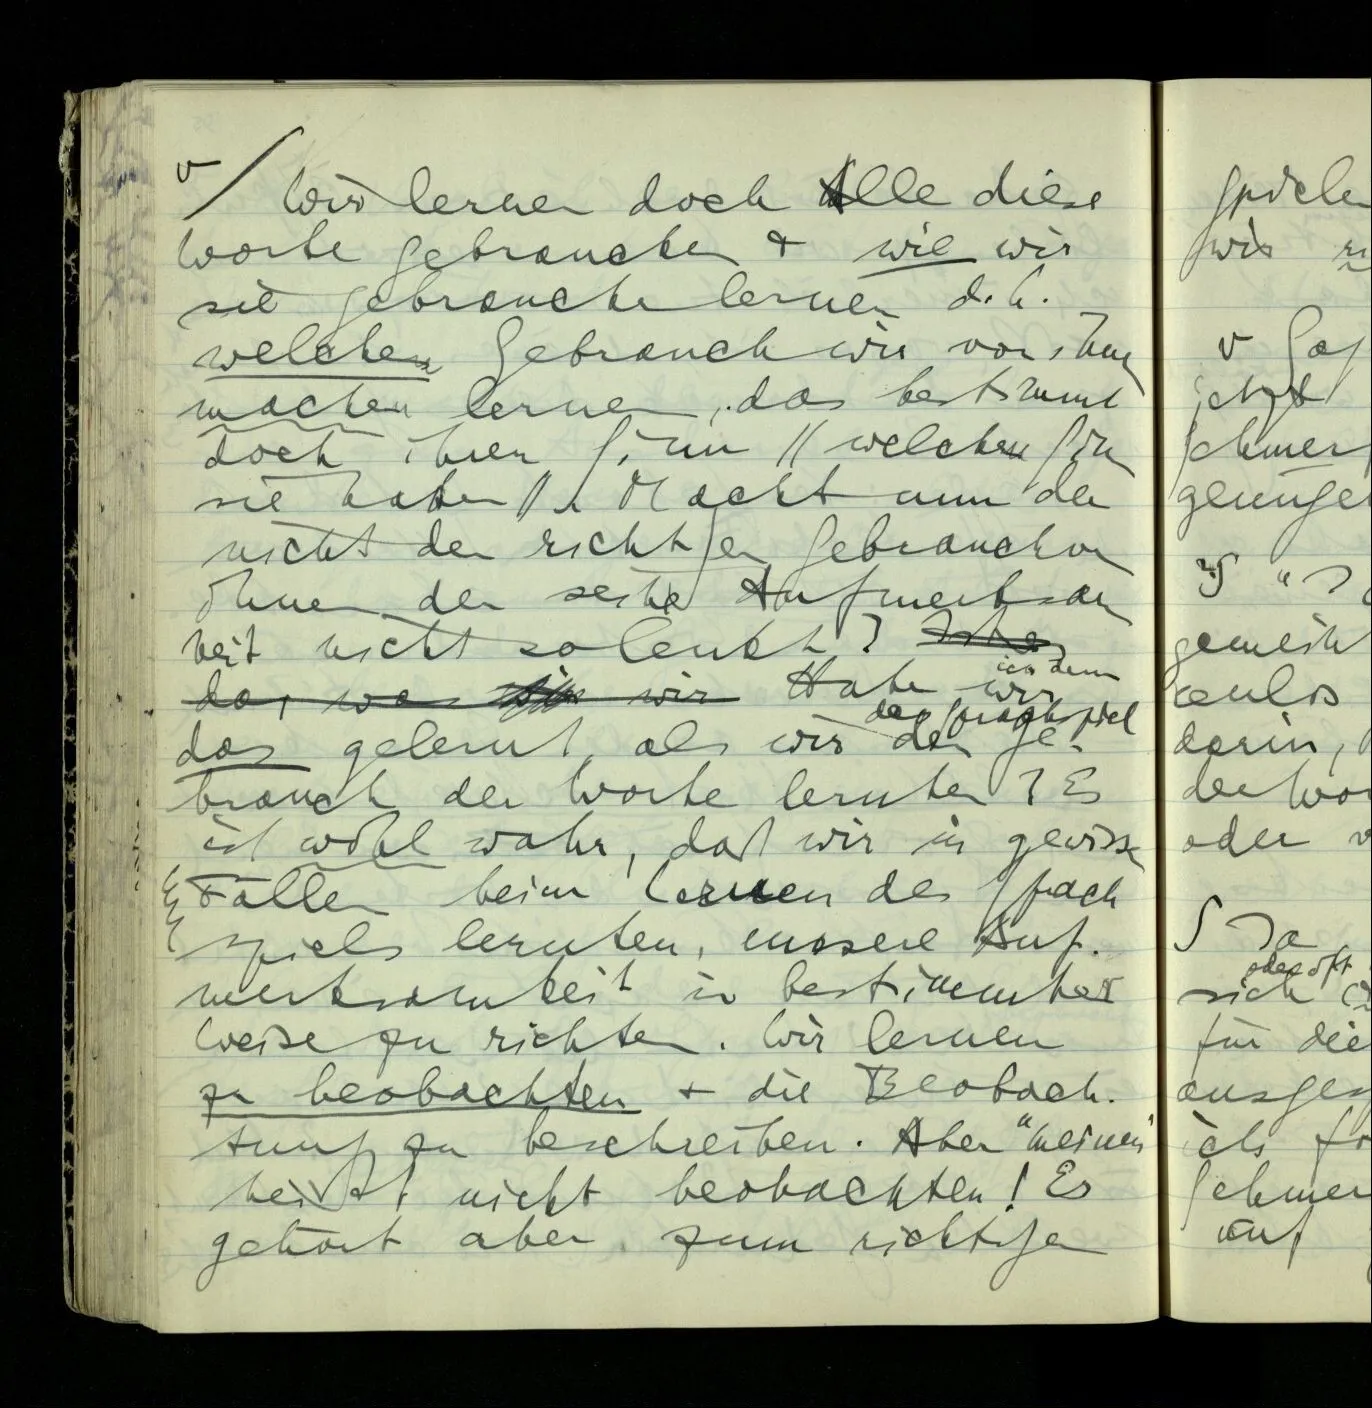 v / Wir lernen doch Alle diese
Worte gebrauchen + wie wir
sie gebrauchen lernen d.h.
welchen Gebrauch wir von ihnen
machen lernen, das bestimmt
doch ihren Sinn // welchen Sinn
sie haben //. Macht nun der
nicht den richtigen Gebrauch von
ihnen der seine Aufmerksam
keit nicht so lenkt?
das, was wir Habe wir
ich denn
das Sprachspiel
das gelernt, als wir den Ge-
brauch der Worte lernten? Es
ist wohl wahr, daß wir in gewissen
Fällen beim Lernen des Sprach
spiels lernten, unsere Auf-
merksamkeit in bestimmter
Weise zu richten. Wir lernen
zu beobachten + die Beobach-
tung zu beschreiben. Aber "meinen"
heißt nicht beobachten! Es
gehört aber zum richtigen
spielen
wir
v
jetzt
S Ja
oder oft
sich
für die
auf
oder
darin,